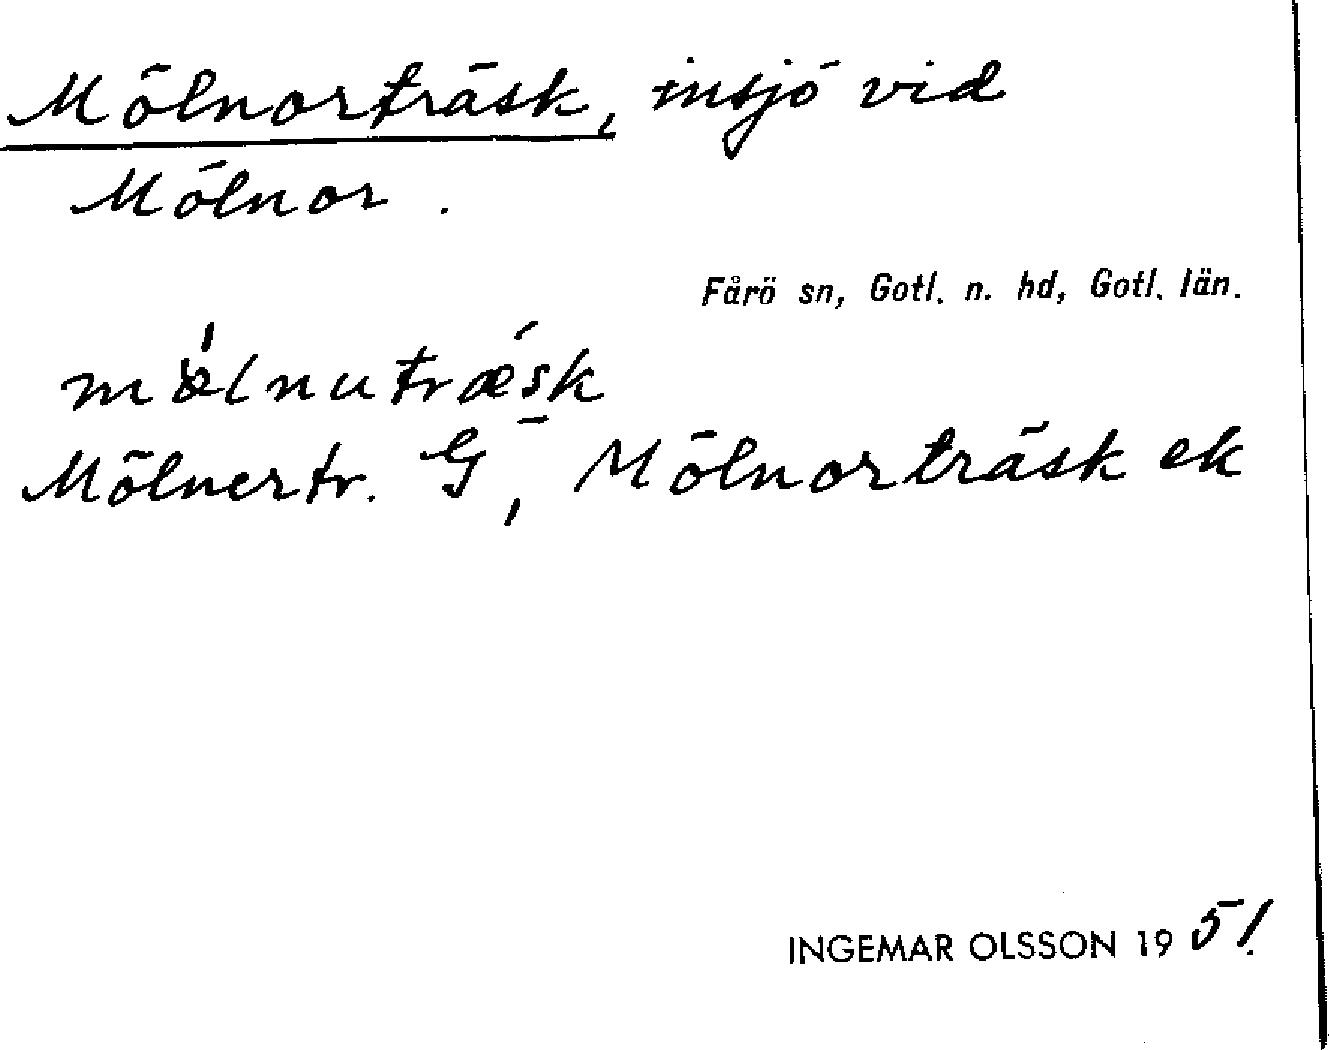 Mölnorträsk, insjö vid
Mölnor.
Fårö sn, Gotl. n. hd, Gotl. län.
Mölnertr. G, Mölnorträsk ek
INGEMAR OLSSON 1951.